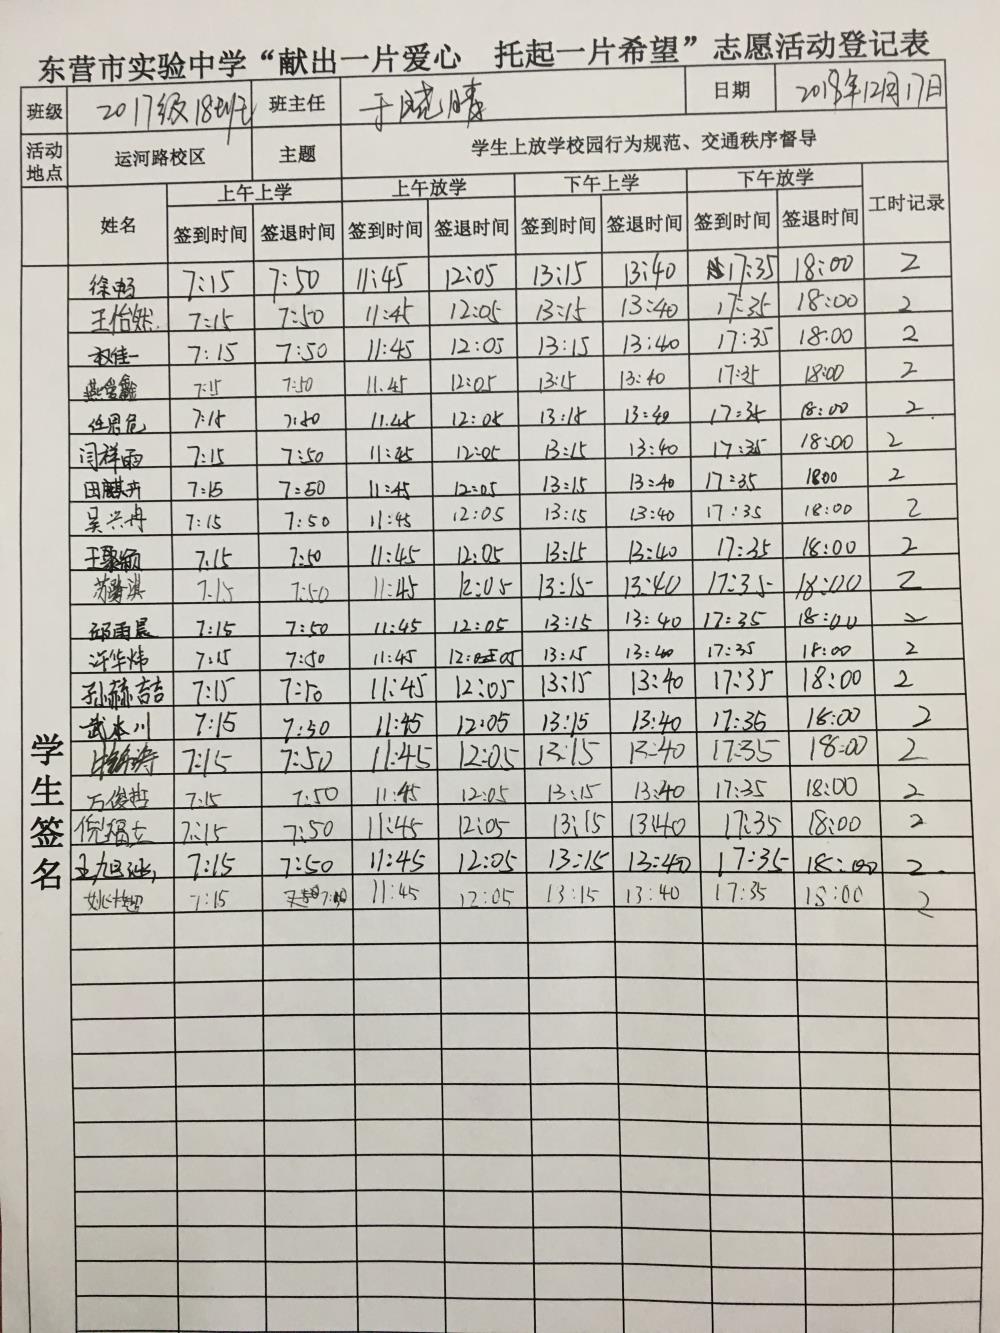 东营市实验中学“献出一片爱心 托起一片希望”志愿活动登记表
班级 2017级18班 班主任 于晓晴 日期 2018年12月17日
活动地点 运河路校区 主题 学生上放学校园行为规范、交通秩序督导
姓名 上午上学 上午放学 下午上学 下午放学 工时记录
签到时间 签退时间 签到时间 签退时间 签到时间 签退时间 签到时间 签退时间
学生签名
徐畅 7:15 7:50 11:45 12:05 13:15 13:40 17:35 18:00 2
王怡然 7:15 7:50 11:45 12:05 13:15 13:40 17:35 18:00 2
权佳一 7:15 7:50 11:45 12:05 13:15 13:40 17:35 18:00 2
7:15 7:50 11:45 12:05 13:15 13:40 17:35 18:00 2
任思危 7:15 7:50 11:45 12:05 13:15 13:40 17:35 18:00 2
闫祥雨 7:15 7:50 11:45 12:05 13:15 13:40 17:35 18:00 2
田麒卉 7:15 7:50 11:45 12:05 13:15 13:40 17:35 1800 2
吴兴冉 7:15 7:50 11:45 12:05 13:15 13:40 17:35 18:00 2
7:15 7:50 11:45 12:05 13:15 13:40 17:35 18:00 2
7:15 7:50 11:45 12:05 13:15 13:40 17:35 18:00 2
邱雨晨 7:15 7:50 11:45 12:05 13:15 13:40 17:35 18:00 2
许华炜 7:15 7:50 11:45 12:05 13:15 13:40 17:35 18:00 2
孙赫喆 7:15 7:50 11:45 12:05 13:15 13:40 17:35 18:00 2
武本川 7:15 7:50 11:45 12:05 13:15 13:40 17:35 18:00 2
7:15 7:50 11:45 12:05 13:15 13:40 17:35 18:00 2
万俊哲 7:15 7:50 11:45 12:05 13:15 13:40 17:35 18:00 2
7:15 7:50 11:45 12:05 13:15 13:40 17:35 18:00 2
7:15 7:50 11:45 12:05 13:15 13:40 17:35 18:00 2
7:15 7:50 11:45 12:05 13:15 13:40 17:35 18:00 2